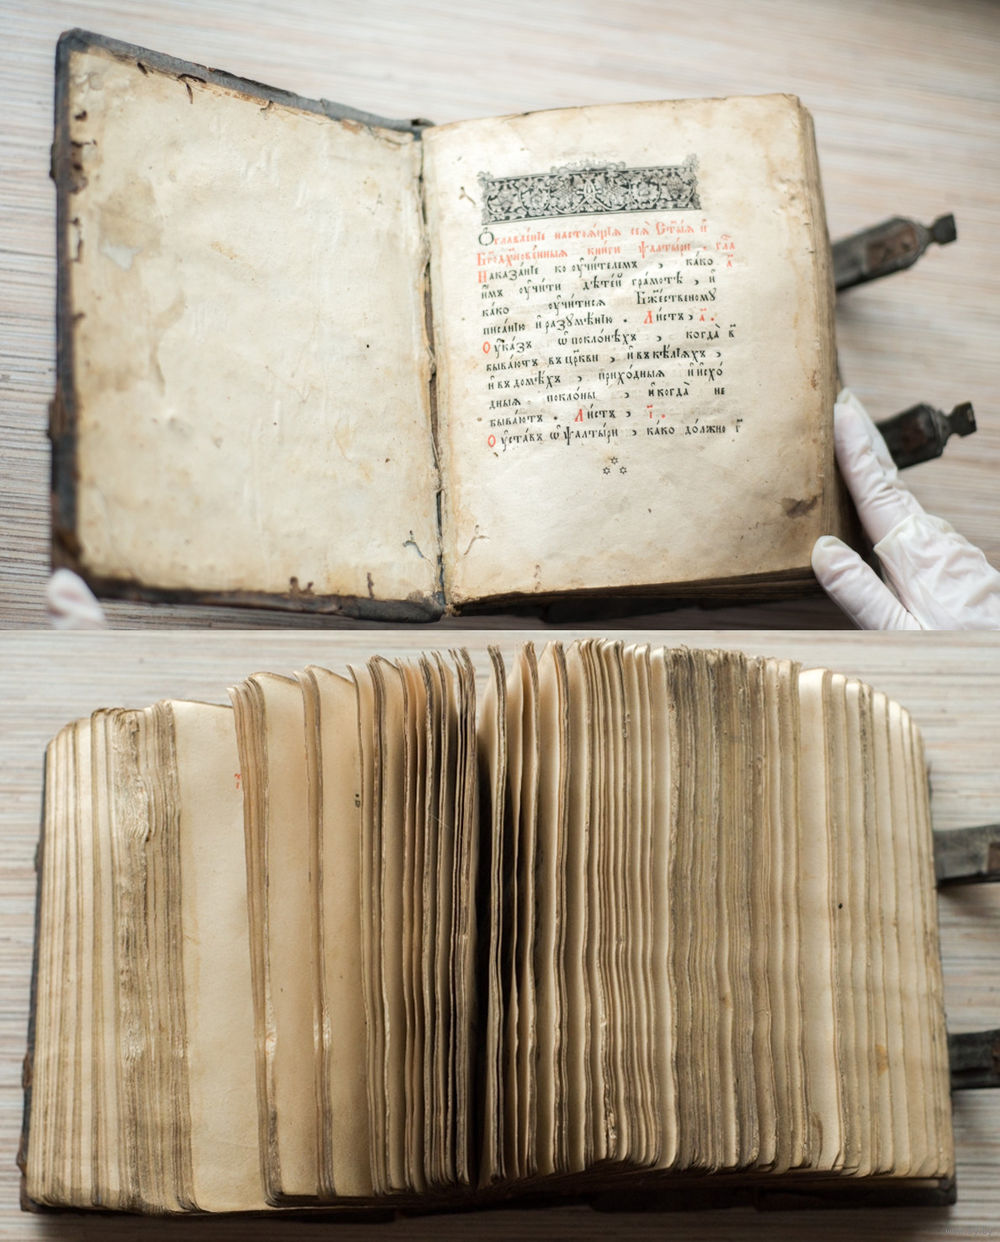 Ѻглавле́нїе настоѧ́щїѧ сеѧ̀ Ст҃ы́ѧ и҆
Бг҃одꙋхнове́нныѧ кни́ги ѱалты́ри . гла
Наказа́нїе ко ᲂу҆чи́телемъ , ка́кѡ а҃
и҆̀мъ ᲂу҆чи́ти дѣте́й гра́мотѣ , и҆
ка́кѡ ᲂу҆чи́тисѧ Бж҃е́ственомꙋ
писа́нїю и҆ разꙋмѣ́нїю . Ли́стъ , а҃ .
Оу҆ка́зъ ѡ҆ покло́нѣхъ , когда̀ в҃
быва́ютъ въ цр҃кви , и҆ въ кѣ́лїѧхъ ,
и҆ въ домѣ́хъ , прихо́дныѧ и҆ и҆схо́
дныѧ покло́ны , и҆ когда̀ не
быва́ютъ . Ли́стъ , і҃ .
Оу҆ста́въ ѡ҆ ѱалты́ри , ка́кѡ до́лжно г҃